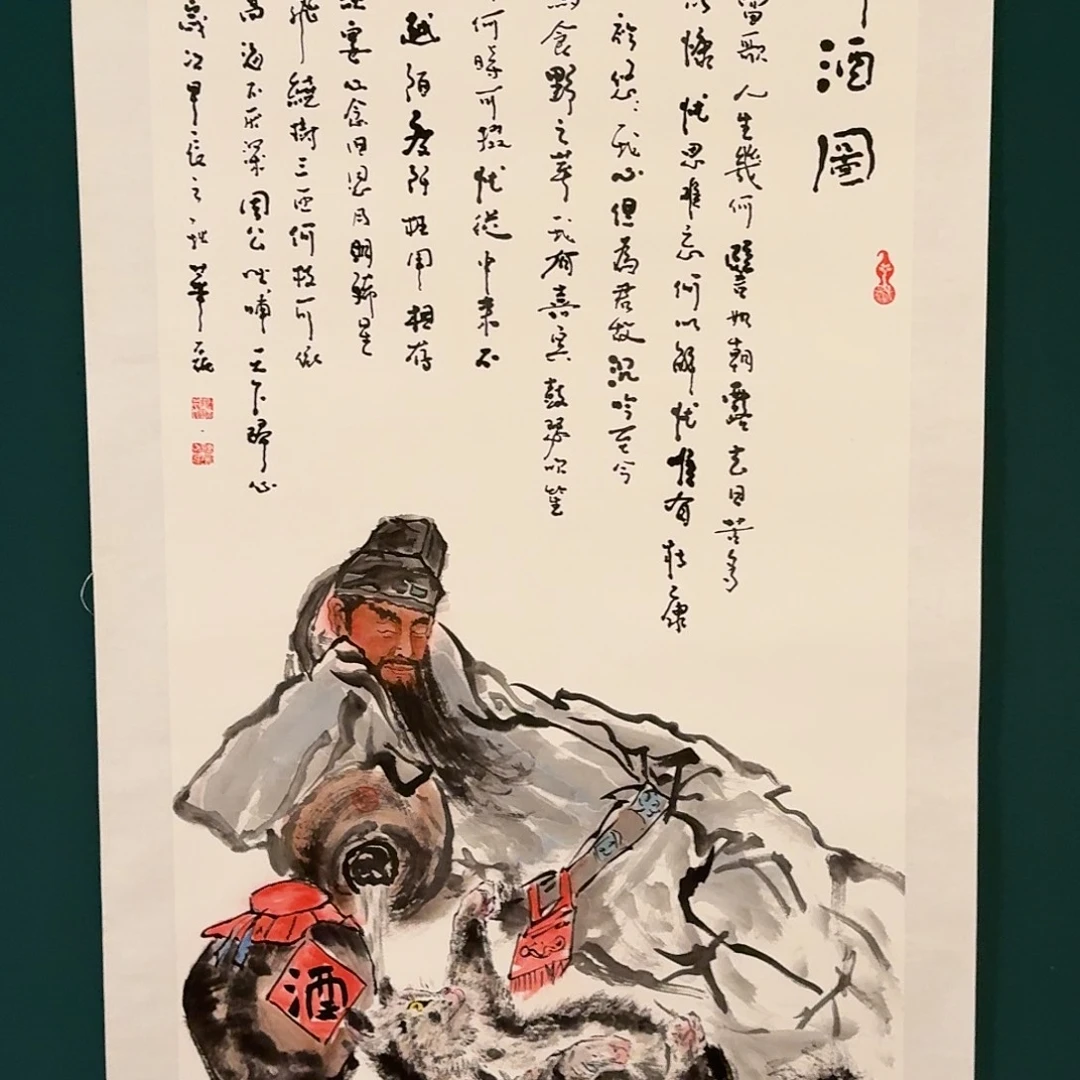 酒圖
當歌人生幾何譬如朝露去日苦多
慷忧思難忘何以解忧惟有杜康
衿悠悠我心但為君故沉吟至今
食野之苹我有嘉宾鼓瑟吹笙
何時可掇忧從中来不
越陌度阡枉用相存
宴心念旧恩月明稀星
飛繞樹三匝何枝可依
高海不厌深周公吐哺天下歸心
歲次甲辰之
酒